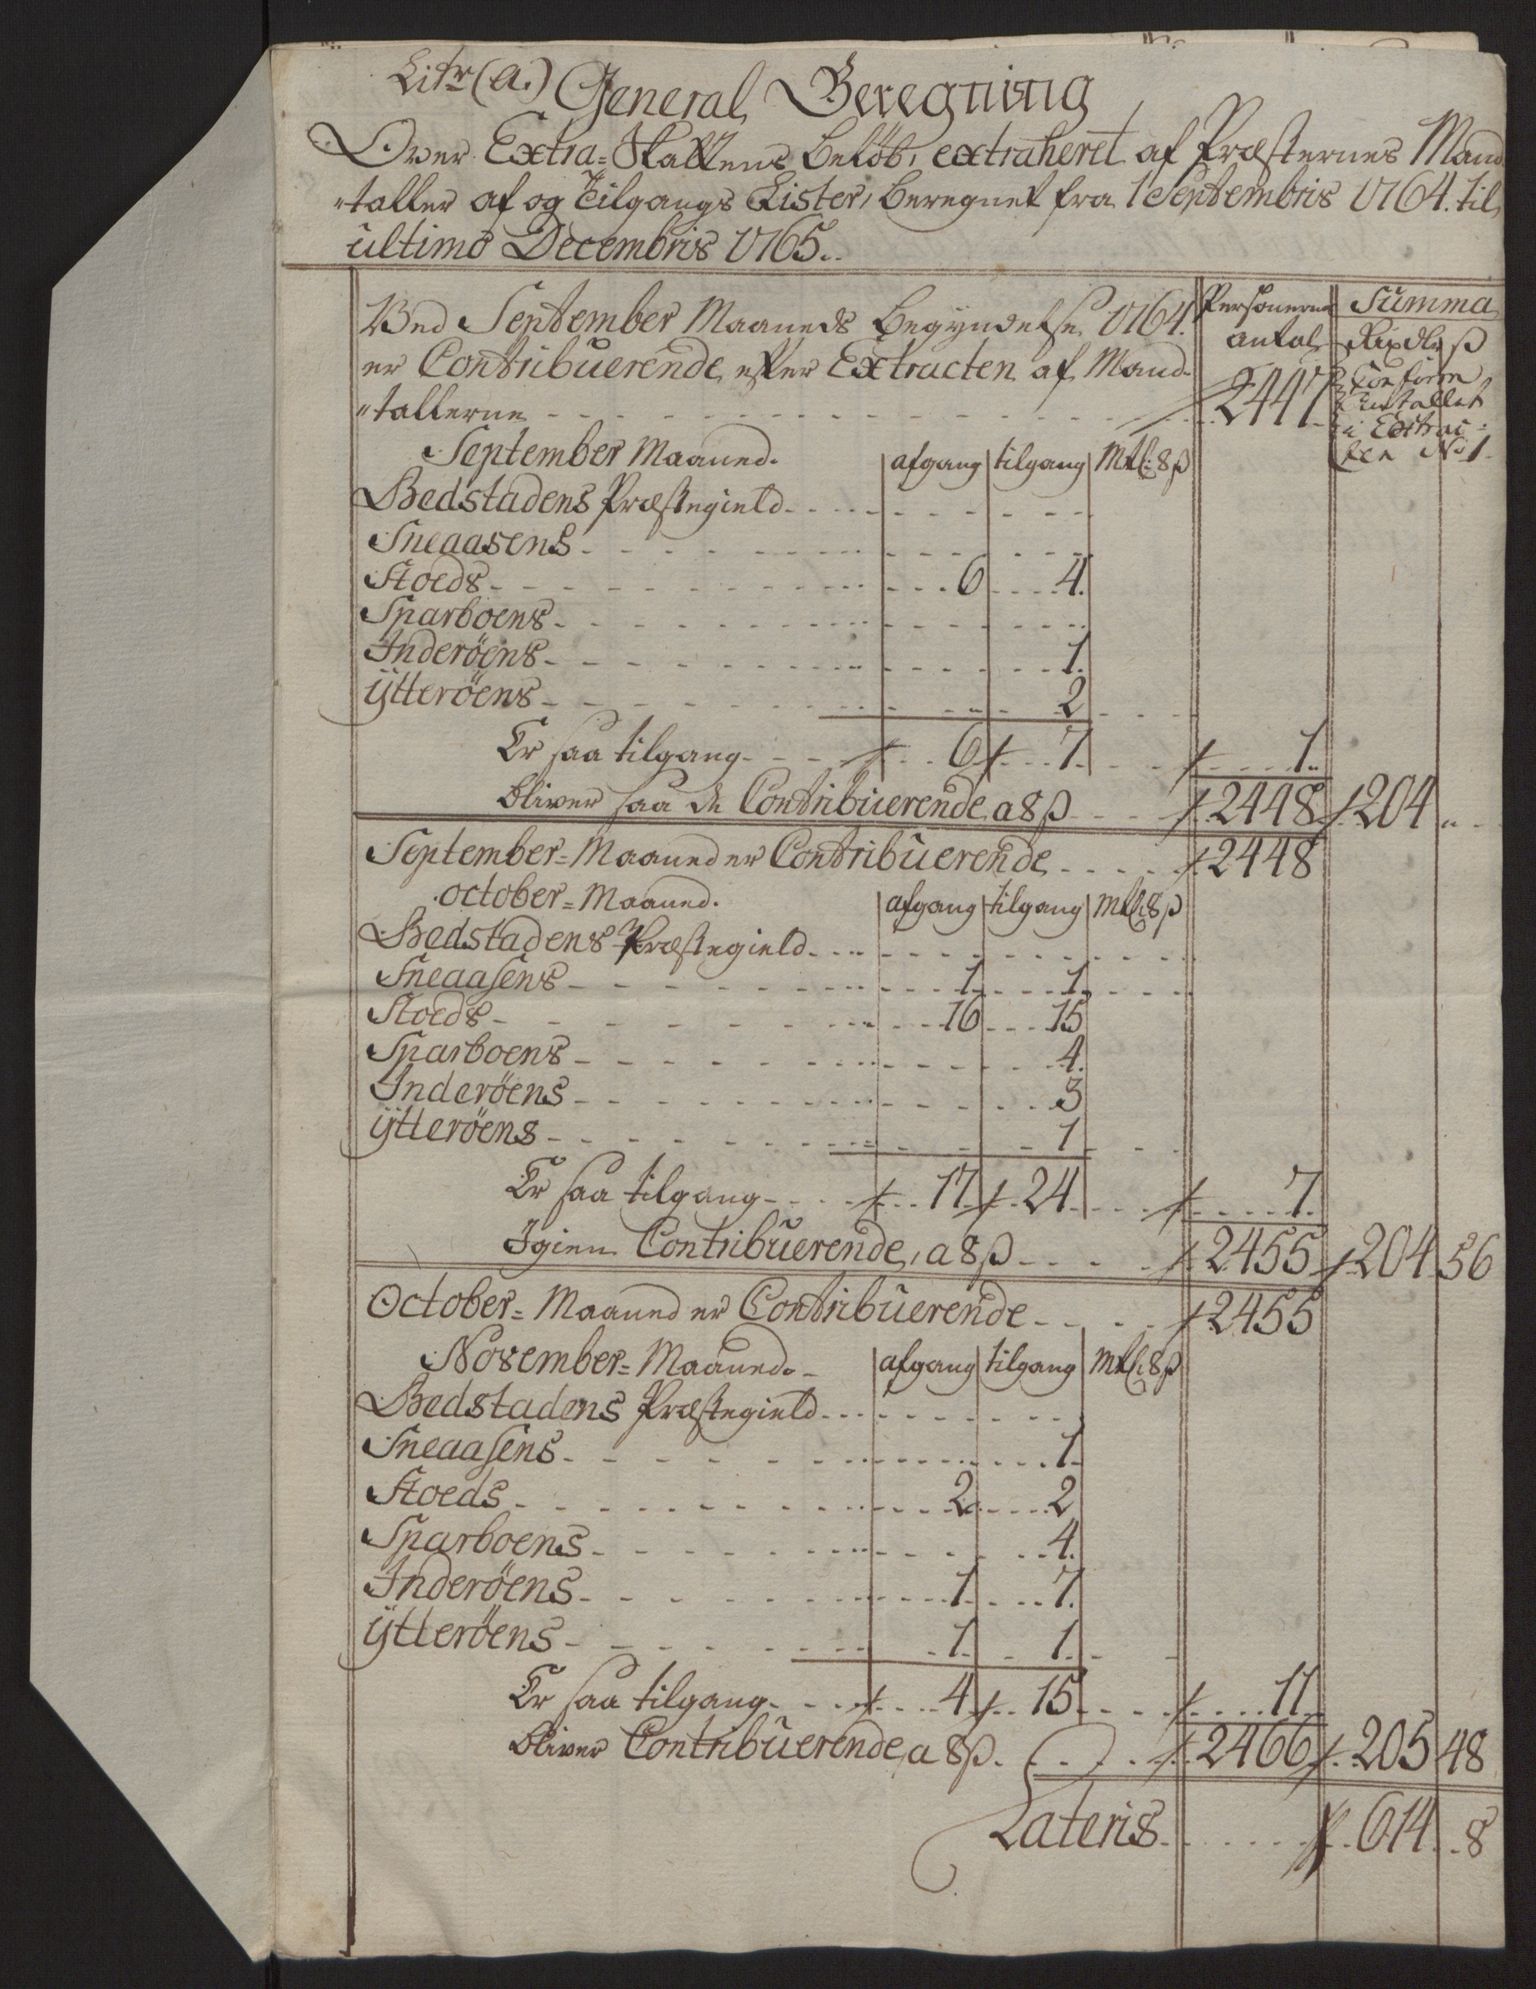 Litr (a.) General Beregning
Over Extra-Skattens beløb, extraheret af Præsternes Mand
"taller af og Tilgangs Lister, beregnet fra 1 Septembris 1764. til
ultimo Decembris 1765.
Personerne Summa
antal Rixdlr ß
Ved September Maaneds Begyndelse 1764.
er Contribuerende efter Extracten af Mand-
"tallerne 2447 Conform
Antallet
i Extrac-
ten No 1.
September Maaned. afgang tilgang Mtl: 8 ß
Bedstadens Præstegield
Sneaasens
Stoeds 6 4.
Sparboens
Inderöens 1.
ÿtteröens 2
Er saa tilgang 6 7. 1.
bliver saa de Contribuerende, a 8 ß 2448 204 "
September-Maaned er Contribuerende 2448
october-Maaned. afgang tilgang Mtl: 8 ß
Bedstadens Præstegield
Sneaasens 1 1
Stoeds 16 15
Sparboens 4.
Inderöens 3
ÿtteröens 1
Er saa tilgang 17 24 7.
Igien Contribuerende, a 8 ß 2455 204 56
October-Maaned er Contribuerende 2455
November-Maaned. afgang tilgang Mtl: 8 ß
Bedstadens Præstegield
Sneaasens 1
Stoeds 2 2
Sparboens 4.
Inderöens 1 7.
ÿtteröens 1 1
Er saa tilgang 4 15 11
bliver Contribuerende, a 8 ß 2466 205 48
Lateris 614 8